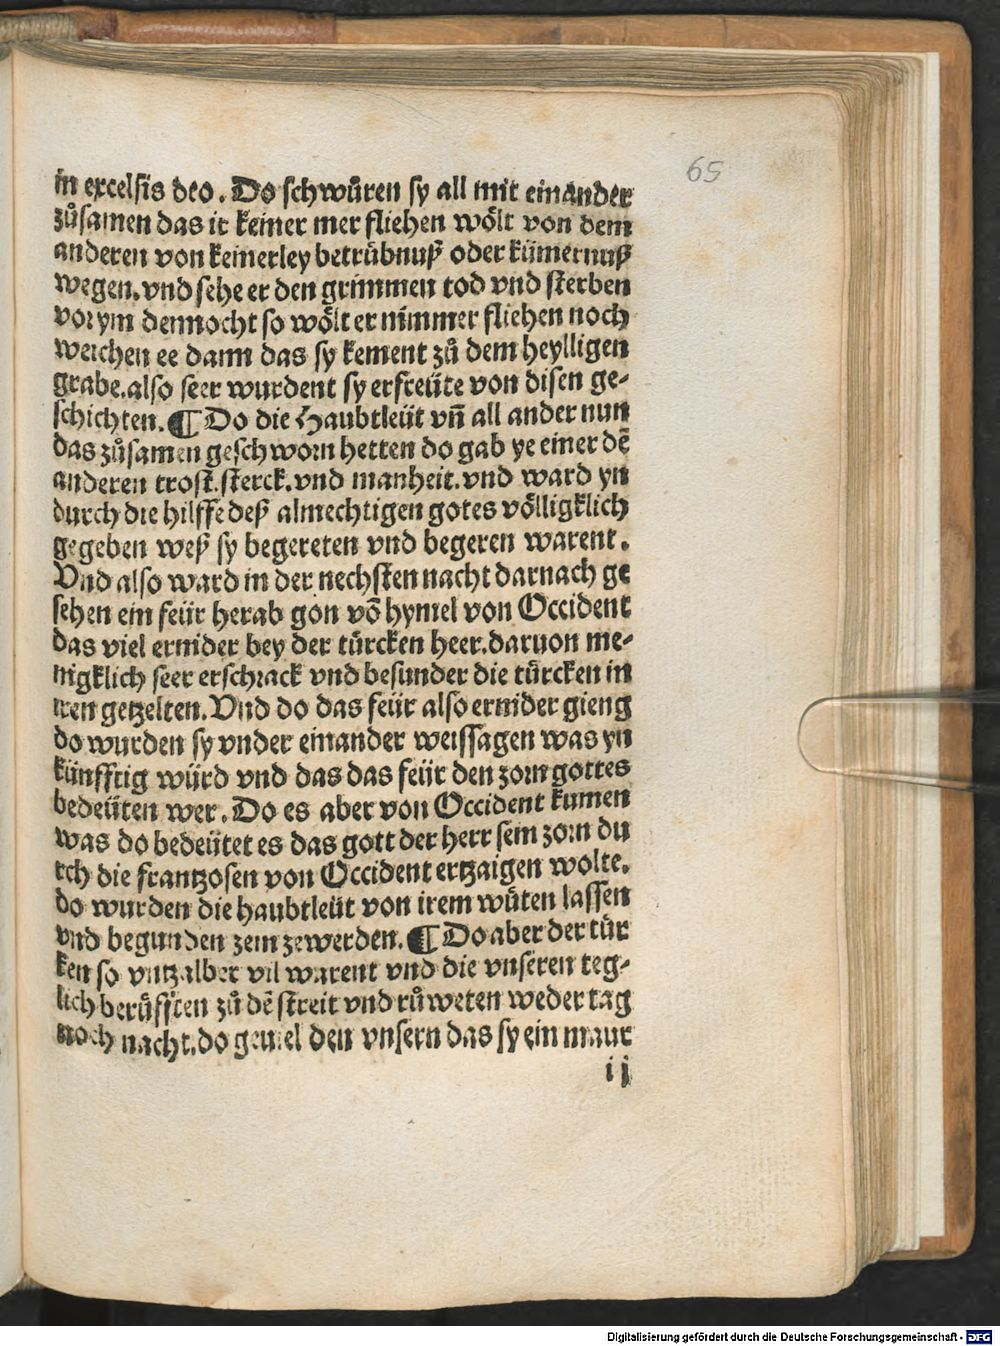 65
in excelsis deo. Do schwůren sy all mit einander
zůsamen das ir keiner mer fliehen wölt von dem
anderen von keinerley betrübnuß oder kümernuß
wegen. vnd sehe er den grimmen tod vnd sterben
vor ym dennocht so wölt er nimmer fliehen noch
weichen ee dann das sy kement zů dem heylligen
grabe. also seer wurdent sy erfreüte von disen ge-
schichten. ¶ Do die Haubtleüt vn̄ all ander nun
das zůsamen geschworn hetten do gab ye einer dē
anderen trost. sterck. vnd manheit. vnd ward yn
durch die hilffe deß almechtigen gotes völligklich
gegeben weß sy begereten vnd begeren warent.
Vnd also ward in der nechsten nacht darnach ge
sehen ein feür herab gon vō hymel von Occident
das viel ernider bey der türcken heer. daruon me-
nigklich seer erschrack vnd besunder die türcken in
iren getzelten. Vnd do das feür also ernider gieng
do wurden sy vnder einander weissagen was yn
künfftig würd vnd das das feür den zorn gottes
bedeüten wer. Do es aber von Occident kumen
was do bedeütet es das gott der herr sein zorn du
rch die frantzosen von Occident ertzaigen wolte.
do wurden die haubtleüt von irem wüten lassen
vnd begunden zem zewerden. ¶ Do aber der tür
ken so vntzalber vil warent vnd die vnseren teg-
lich berůfften zů dē streit vnd růweten weder tag
noch nacht. do geuiel den vnsern das sy ein maur
i j
Digitalisierung gefördert durch die Deutsche Forschungsgemeinschaft - DFG